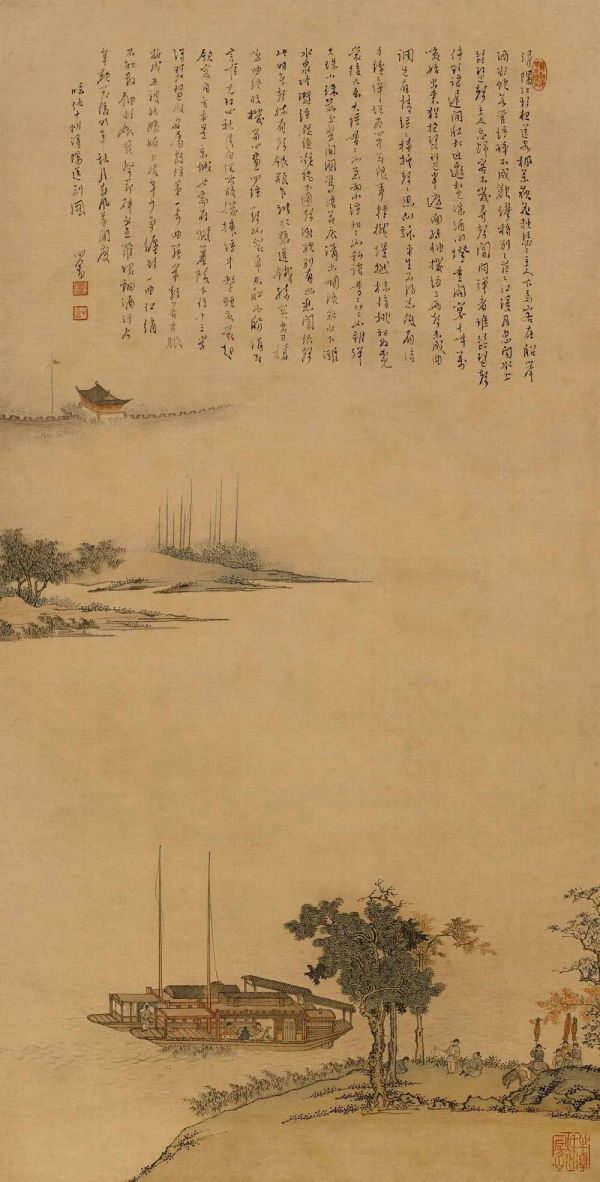 潯陽江頭夜送客楓葉荻花秋瑟〻主人下馬客在船舉
酒欲飲無管絃醉不成歡慘將別〻時茫〻江浸月忽聞水上
琵琶聲主人忘歸客不發尋聲闇問彈者誰琵琶聲
停欲語遲移船相近邀相見添酒回燈重開宴千呼萬
喚始出來猶抱琵琶半遮面轉軸撥絃三兩聲未成曲
調先有情絃〻掩抑聲〻思似訴平生不得志低眉信
手續〻彈說盡心中無限事輕攏慢撚抹復挑初為霓
裳後六幺大絃嘈〻如急雨小絃切〻如私語嘈〻切〻錯雜彈
大珠小珠落玉盤間關鶯語花底滑幽咽泉流水下灘
水泉冷澀絃凝絕凝絕不通聲漸歇別有幽愁闇恨生
此時無聲勝有聲銀瓶乍破水漿迸鐵騎突出刀槍
鳴曲終收撥當心畫四絃一聲如裂帛東船西舫悄無
言唯見江心秋月白沉吟放撥插絃中整頓衣裳起
斂容自言本是京城女家在蝦蟇陵下住十三學
得琵琶成名屬教坊第一部曲罷常教善才服
妝成每被秋娘妒五陵年少爭纏頭一曲紅綃
不知數鈿頭銀篦擊節碎血色羅裙翻酒污今
年歡笑復明年秋月春風等閒度
臨仇十洲潯陽送別圖
心畬